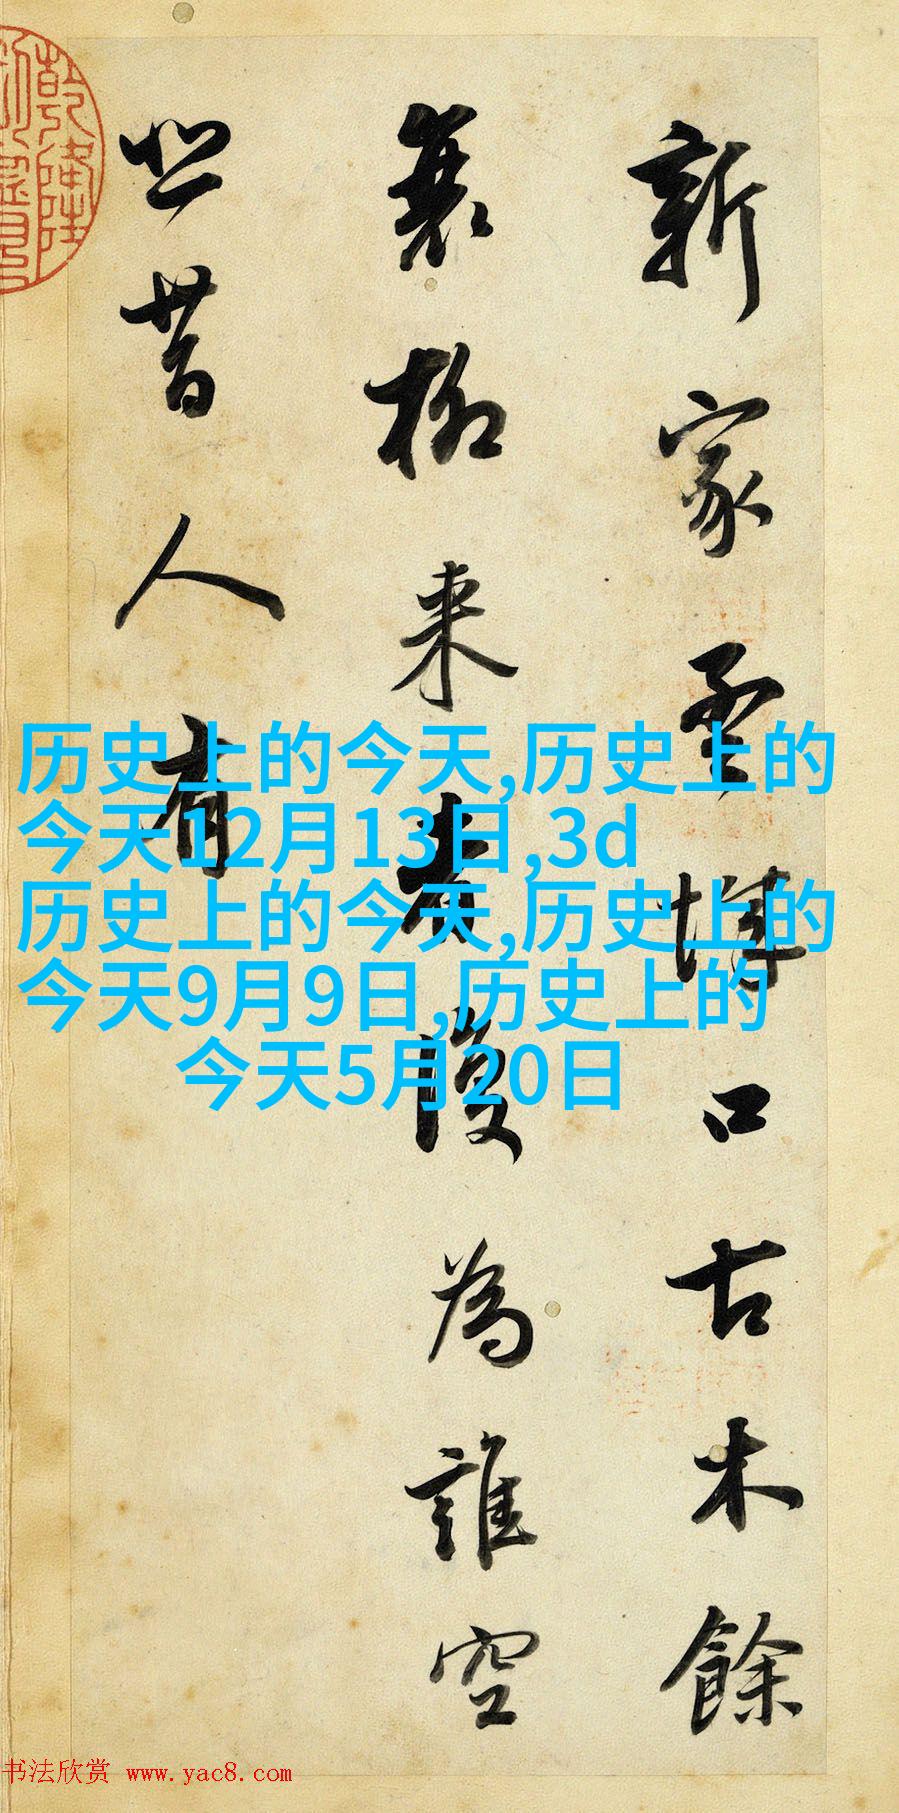 新家孟城口古木餘
衰柳来者復為誰空
悲昔人有
历史上的今天,历史上的
今天12月13日,3d
历史上的今天,历史上的
今天9月9日,历史上的
今天5月20日
书法欣赏 www.yac8.com